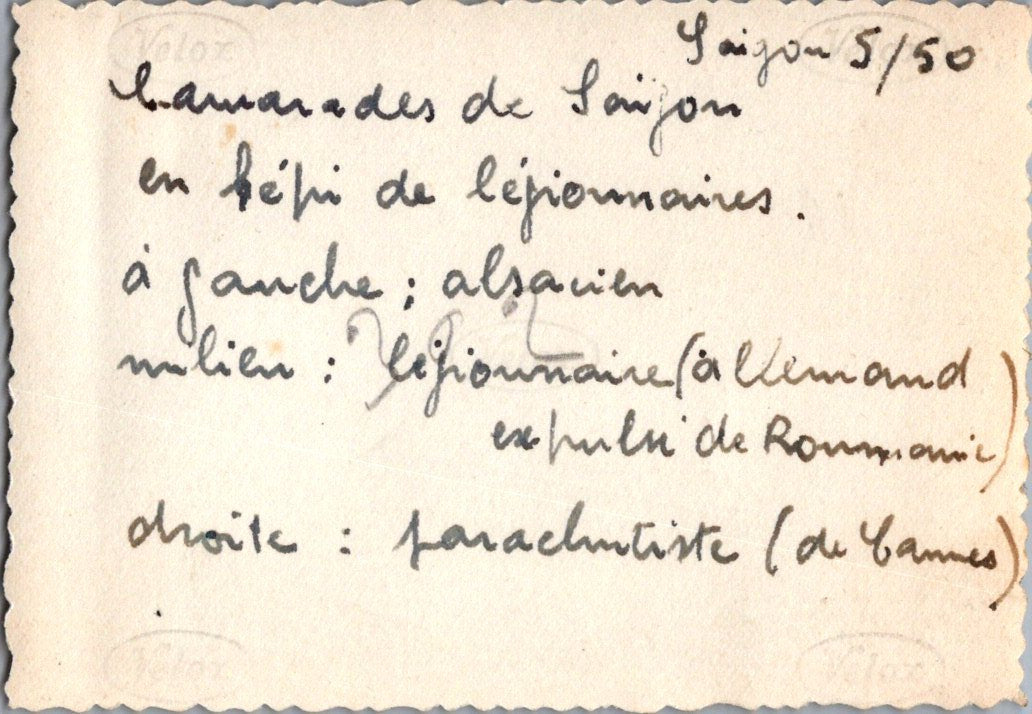 Velox
Saigon 5/50
Camarades de Saïgon
en képi de légionnaires.
à gauche : alsacien
milieu : légionnaire (allemand
expulsé de Roumanie)
droite : parachutiste (de Cannes)
Velox
Velox